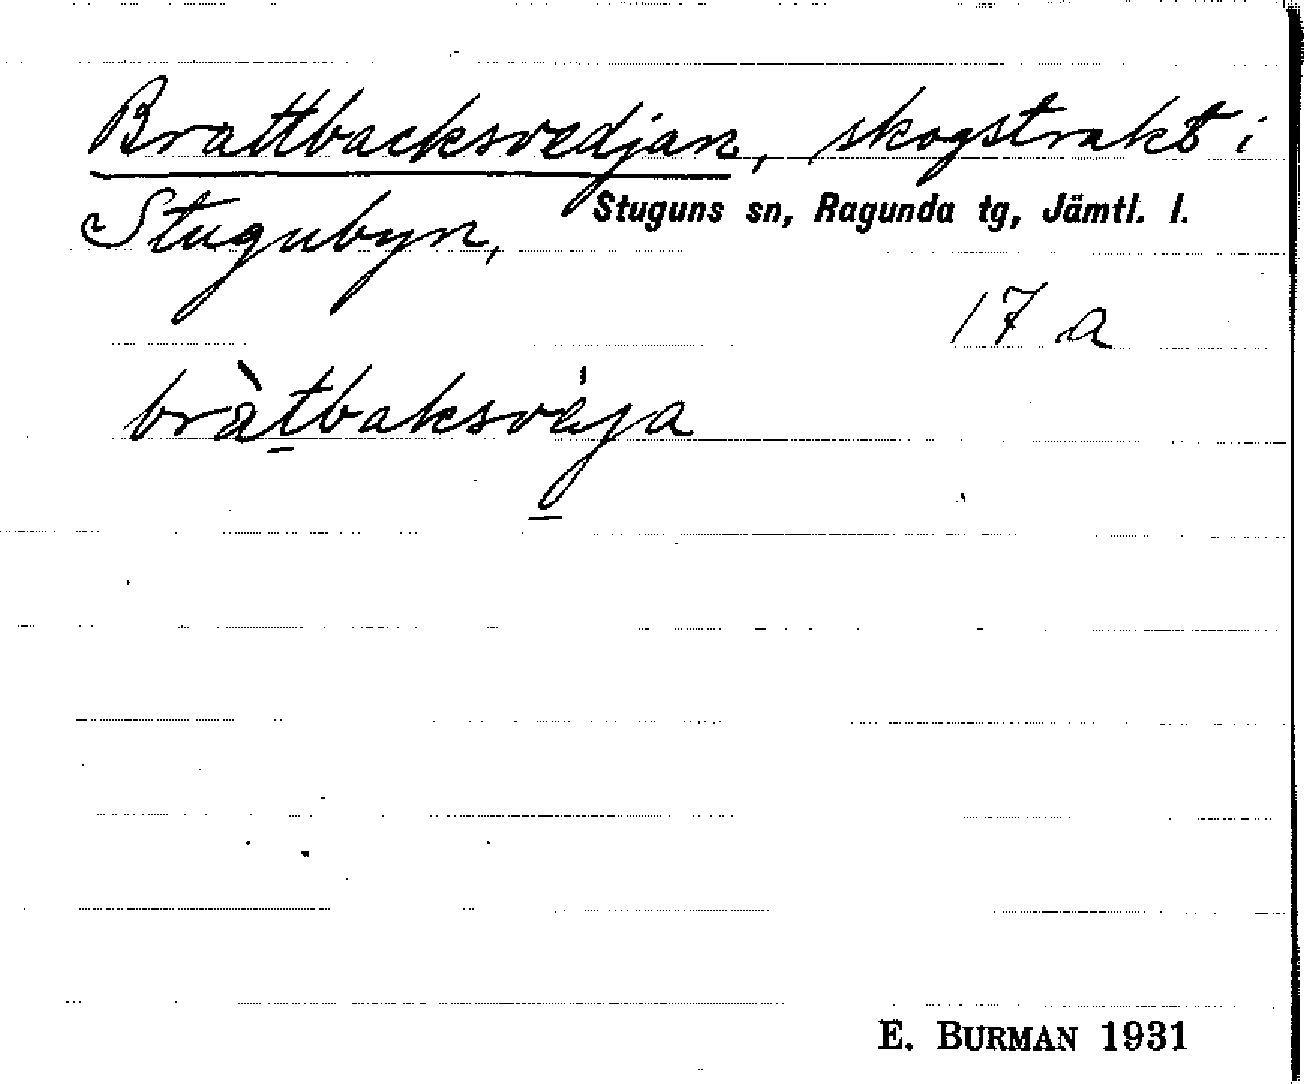 Brattbacksvedjan, skogstrakt i
Stugubyn, Stuguns sn, Ragunda tg, Jämtl. l.
17 a
bràt̲baksvája
E. BURMAN 1931